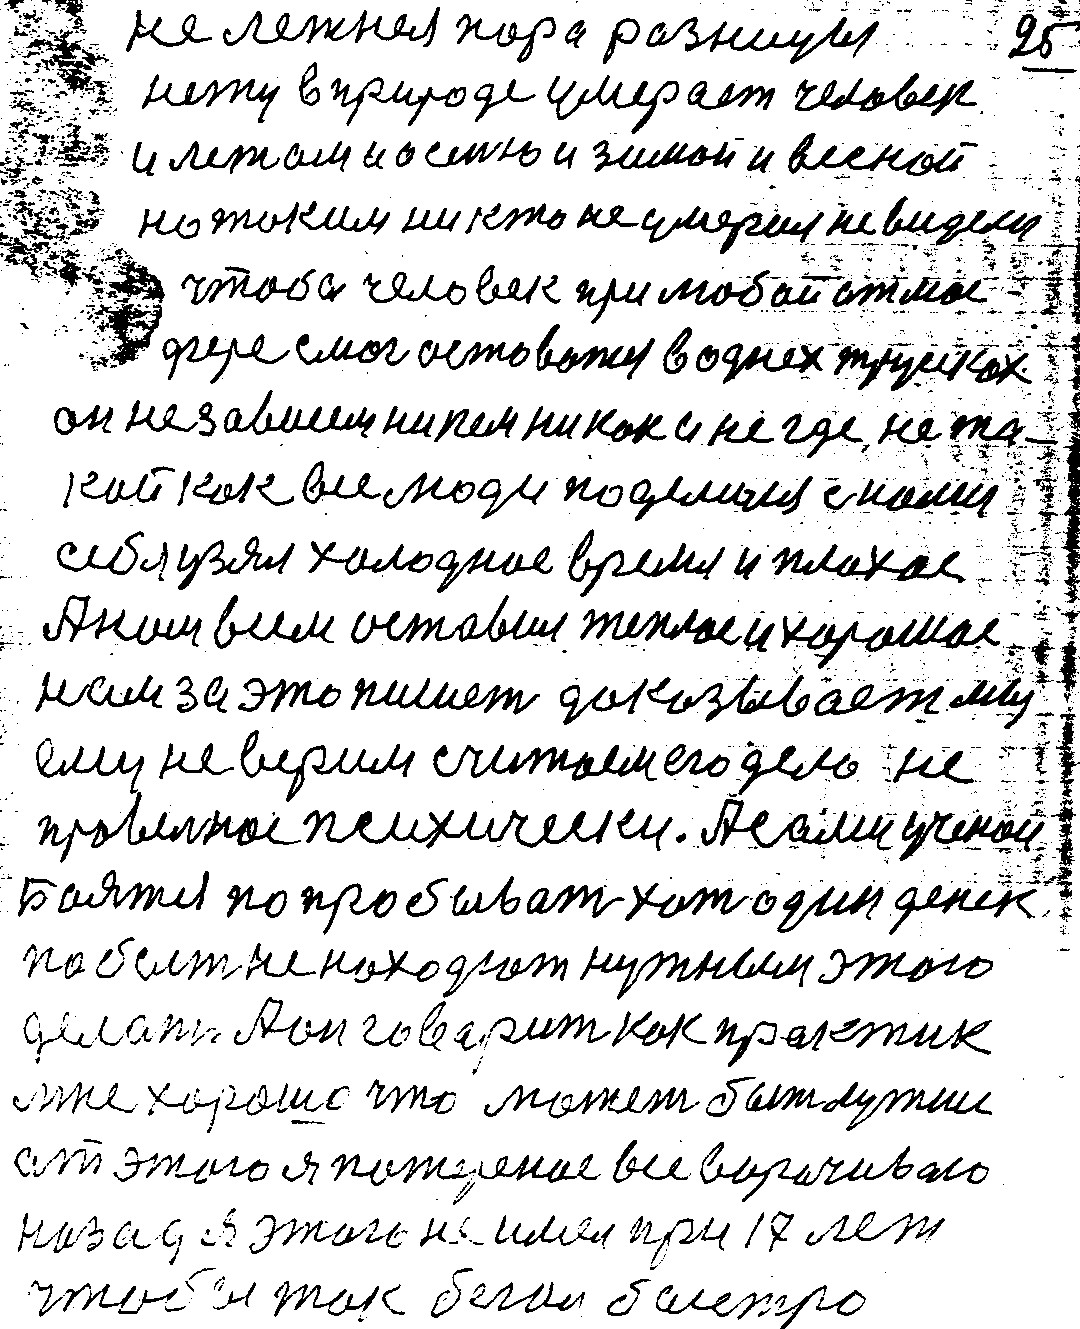 не летнея пора разницы 25
нету в природе умерает человек
и летом и осенью и зимой и весной
но таким никто не умерал не видели
чтоба человек при любой атмос
фере смог оставатся в однех трусиках
он не зависим ни кем ни как и не где, не та-
кой как все люди поделился с нами
себя узял холодное время и плохое
А нам всем оставил теплое и хорошое
нам за это пишет доказывает мы
ему не верим считаем его дело не
правелное психически. А сами ученои
Боятся попробыват хот один денек
побыт не находют нужным этого
делать А он говарит как практик
мне хорошо что может быт лутши
от этого я потереное все ворочиваю
назад я этого не имел при 17 лет
чтобы так бегал быстро